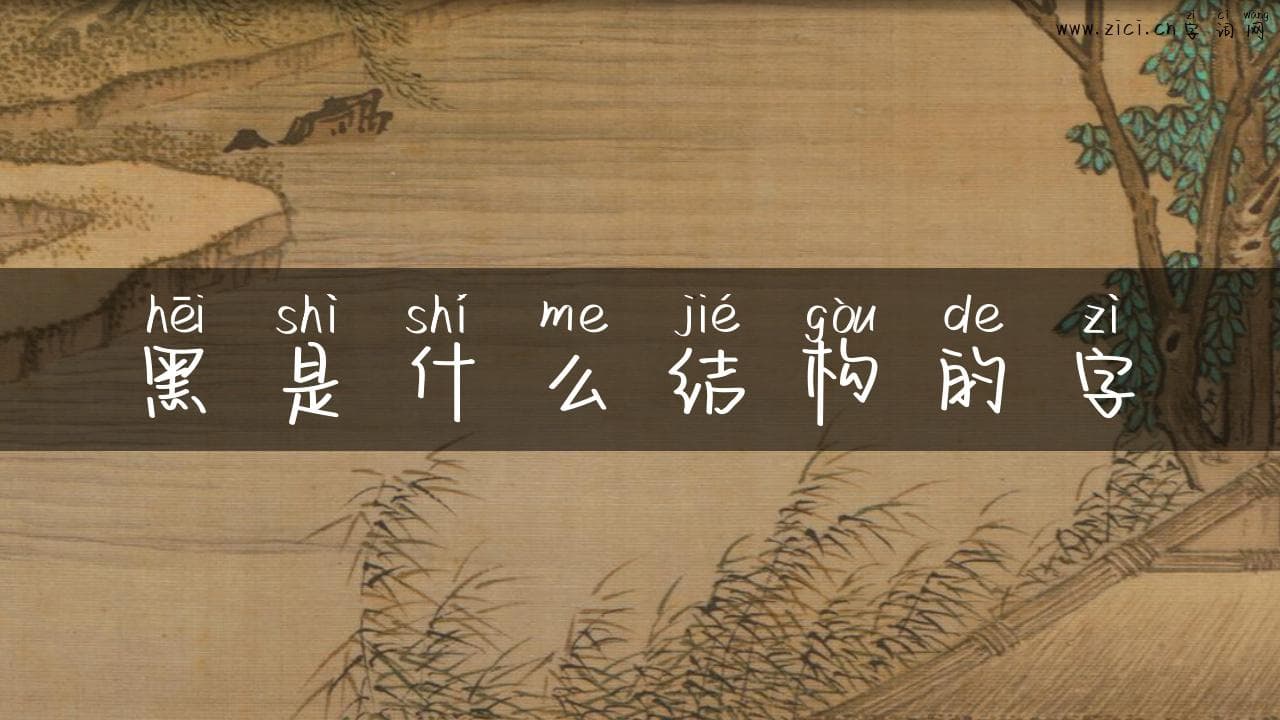 zì cí wǎng
www.zici.cn 字 词 网
hēi shì shí me jié gòu de zì
黑 是 什 么 结 构 的 字